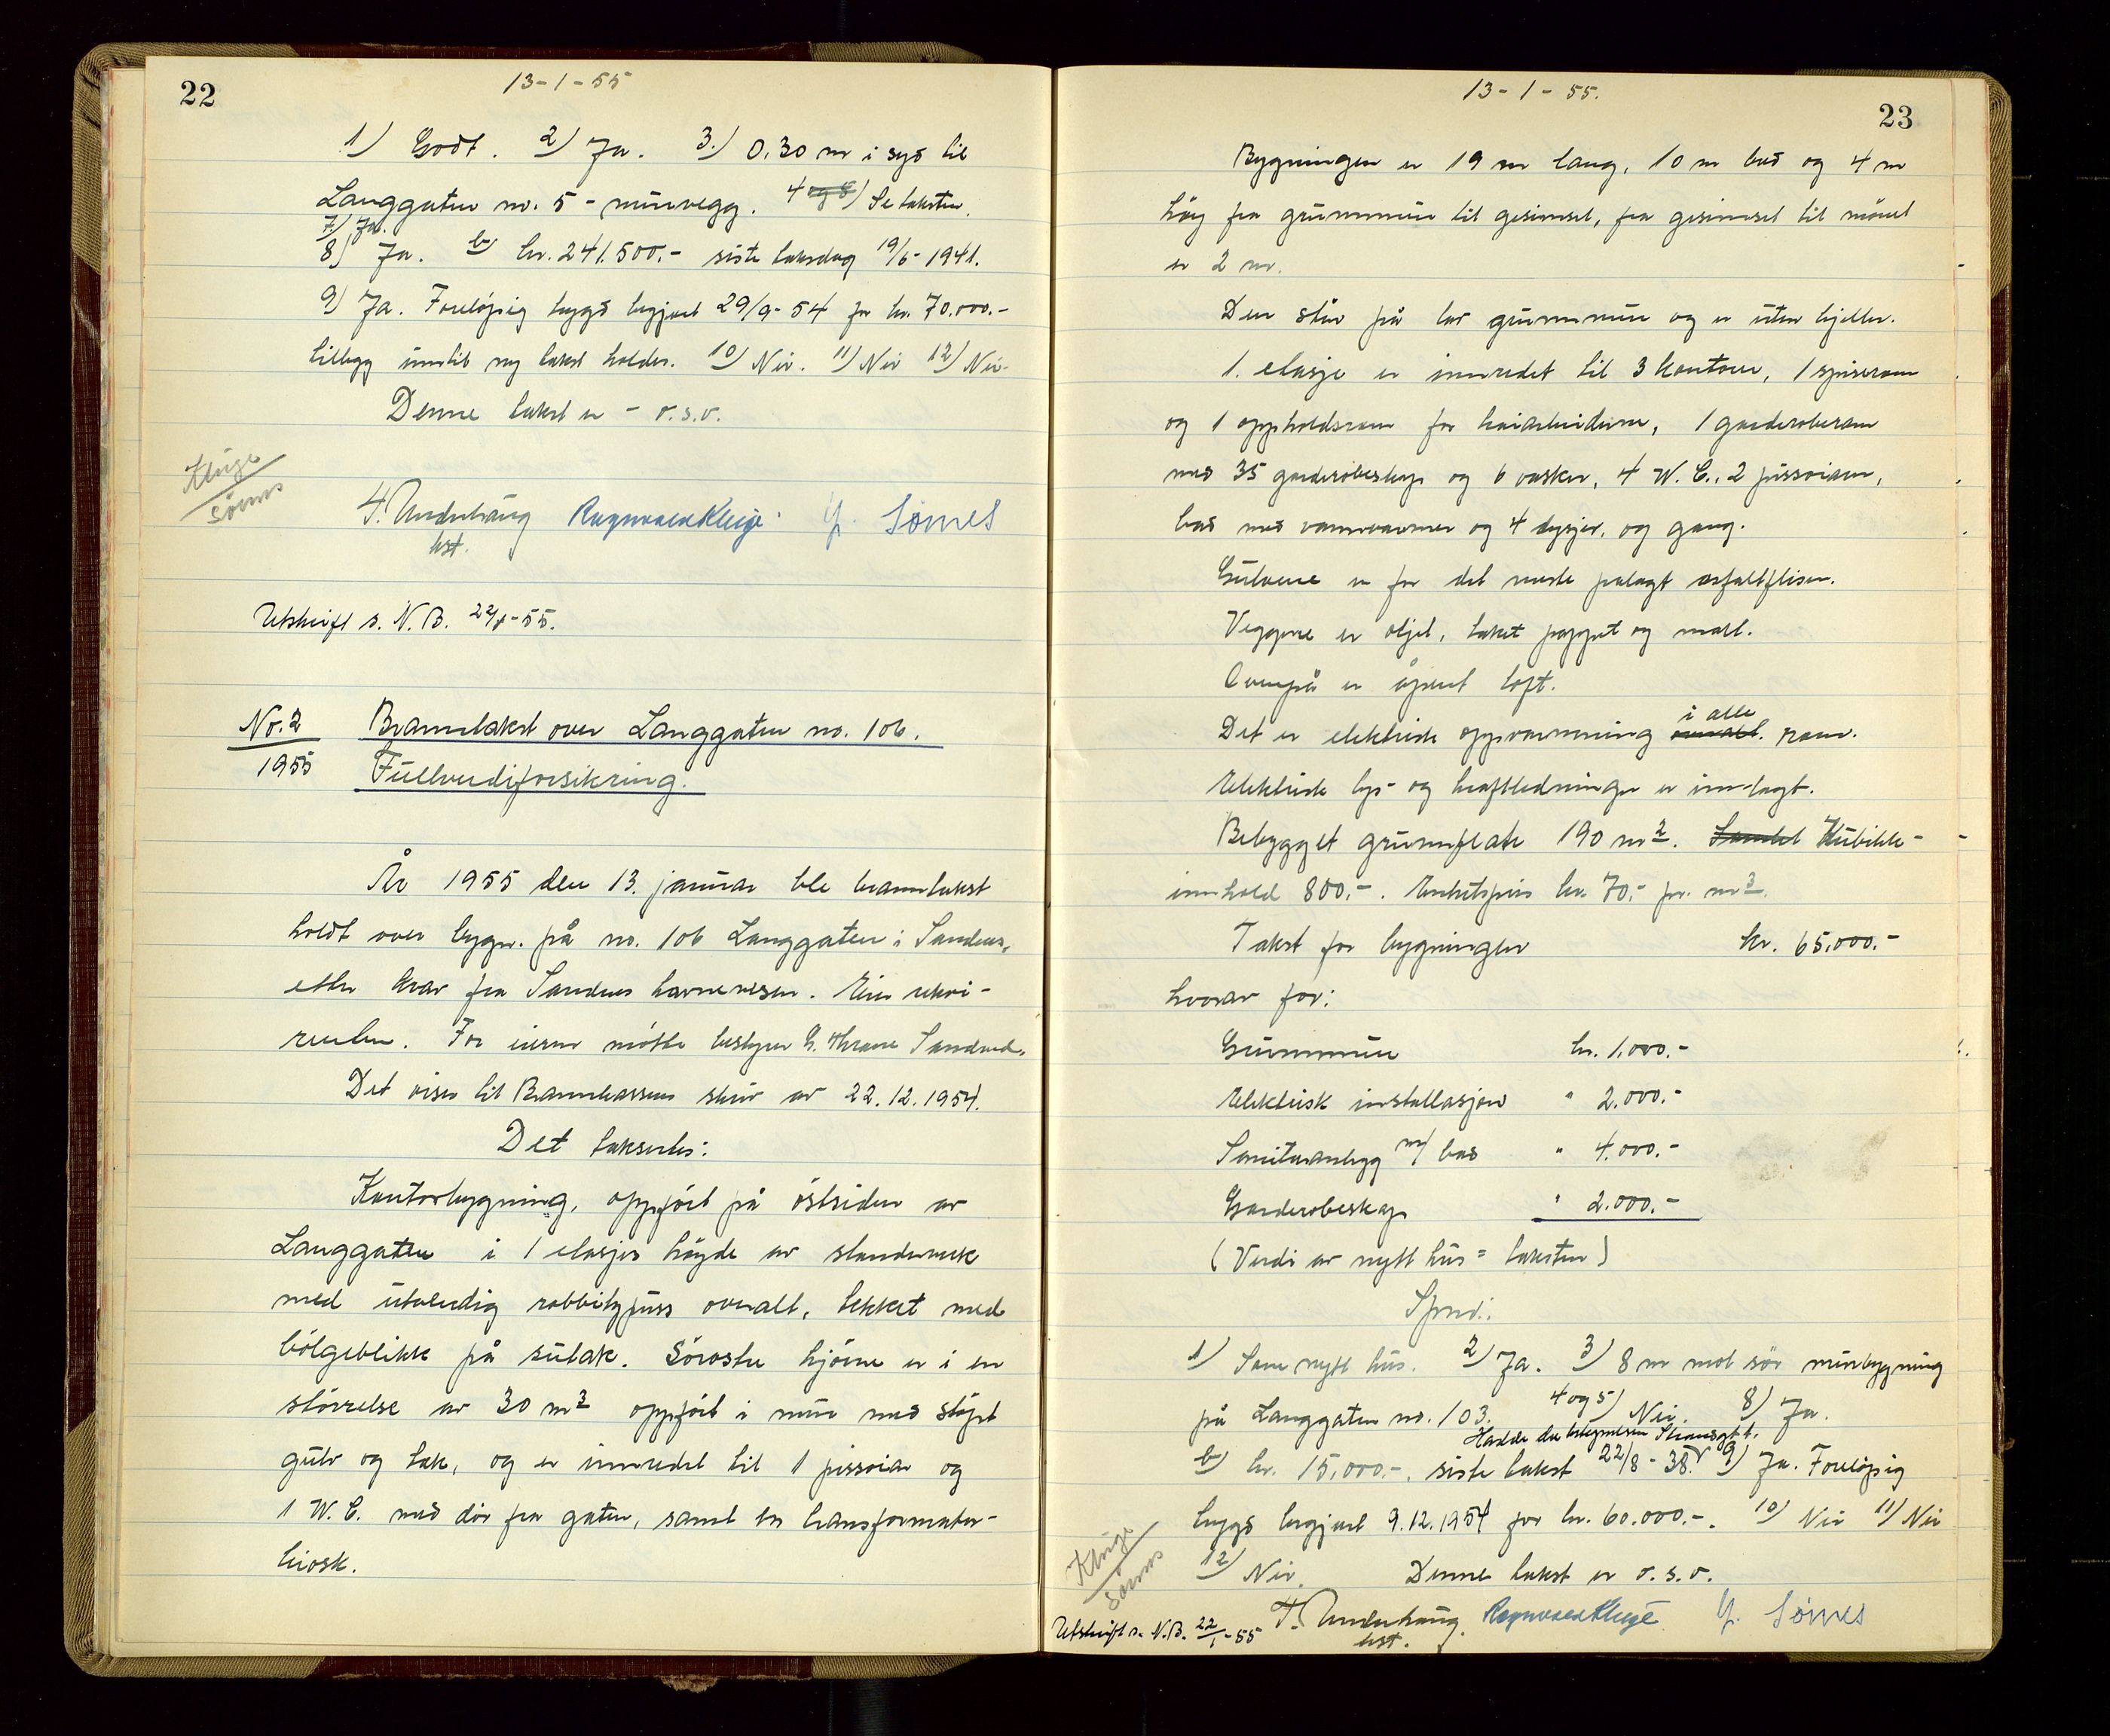 22
13-1-55
1) Godt. 2) Ja. 3.) 0,30 m i syd til
Langgaten no. 5 - murvegg. 4 og 5) Se taksten.
7) Ja.
8) Ja. b) kr. 241.500.- siste taksdag 19/6-1941.
9) Ja. Foreløpig trygd begjært 29/9-54 for kr. 70.000.-
tillegg inntil ny takst holdes. 10) Nei. 11) Nei 12) Nei.
Denne takst er - o.s.v.
Kluge
Sømes
T. Underhaug Ragnvald Kluge. Sømes
bst.
Utskrift s. N.B. 22/1-55.
No. 2 Branntakst over Langgaten no. 106.
1955 Fullverdiforsikring.
År 1955 den 13. januar ble branntakst
holdt over bygn. på no. 106 Langgaten i Sandnes,
etter krav fra Sandnes havnevesen. Eier rekvi-
renten. For eieren møtte bestyrer G. Thrane Sandved.
Det vises til Brannkassens skriv av 22.12.1954.
Det taksertes:
Kontorbygning, oppført på østsiden av
Langgaten i 1 etasjes høyde av standerverk
med utvendig rabbitzpuss overalt, tekket med
bölgeblikk på sutak. Sørøstre hjörne er i en
størrelse av 30 m3 oppført i mur med støpt
gulv og tak, og er innredet til 1 pissoiar og
1 W.C. med dör fra gaten, samt en transformator-
kiosk.
13-1-55.
23
Bygningen er 19 m lang, 10 m bred og 4 m
høy fra grunnmur til gesimset, fra gesimset til mønet
er 2 m.
Den står på lav grunnmur og er uten kjeller.
1. etasje er innredet til 3 kontorer, 1 spiserom
og 1 oppholdsrom for kaiarbeiderne, 1 garderoberom
med 35 garderobeskap og 6 vasker, 4 W.C., 2 pissoiarer,
bad med vannvarmer og 4 dysjer, og gang.
Gulvene er for det meste pålagt asfaltfliser.
Veggene er oljet, taket pappet og malt.
Ovenpå er åpent loft.
i alle
Det er elektrisk oppvarmning overalt. rom.
Elektrisk lys- og kraftledninger er inn-lagt.
Bebygget grunnflate 190 m2. Samlet Kubikk-
innhold 800.-. Enhetspris kr. 70.- pr. m3.
Takst for bygningen kr. 65.000.-
hvorav for:
Grunnmur kr. 1.000.-
Elektrisk installasjon " 2.000.-
Sanitæranlegg m/ bad " 4.000.-
Garderobeskap " 2.000.-
(Verdi av nytt hus = taksten)
Spm.:
1) Som nytt hus. 2) Ja. 3) 8 m mot sör murbygning
på Langgaten no. 103. 4 og 5) Nei. 8) Ja.
Hadde da betegnelsen Strandgt 1.
b) kr. 15.000.-, siste takst 22/8-38. 9) Ja. Foreløpig
trygd begjært 9.12.1954 for kr. 60.000.-. 10) Nei 11) Nei
12) Nei. Denne takst er o.s.v.
Kluge
Sømes
T. Underhaug. Ragnvald Kluge Sømes
bst.
Utskrift s. N.B. 22/1-55